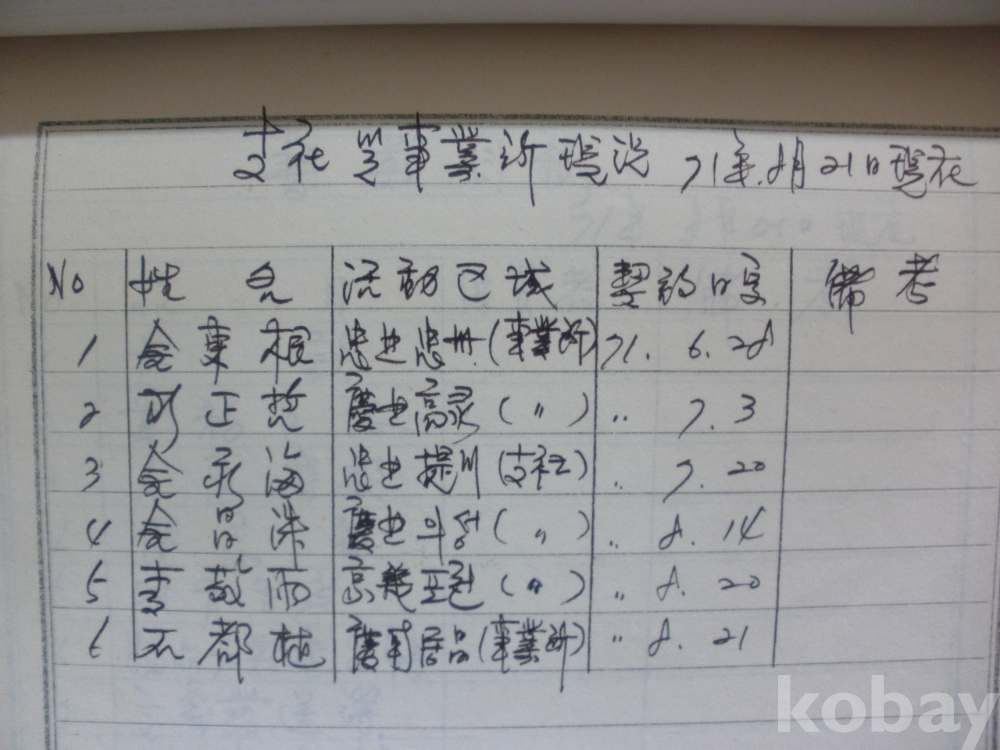 支社 및 事業所 現況 71年.8月21日 現在
No 姓名 活動区域 契約日字 備考
1 金東根 忠北忠州(事業所) 71. 6. 28
2 正哲 慶北高灵(〃) 〃 7. 3
3 金 海 忠北提川(支社) 〃 7. 20
4 金昌洙 慶北의성(〃) 〃 8. 14
5 李敬雨 京畿포천(〃) 〃 8. 20
6 石都植 慶南居昌(事業所) 〃 8. 21
kobay